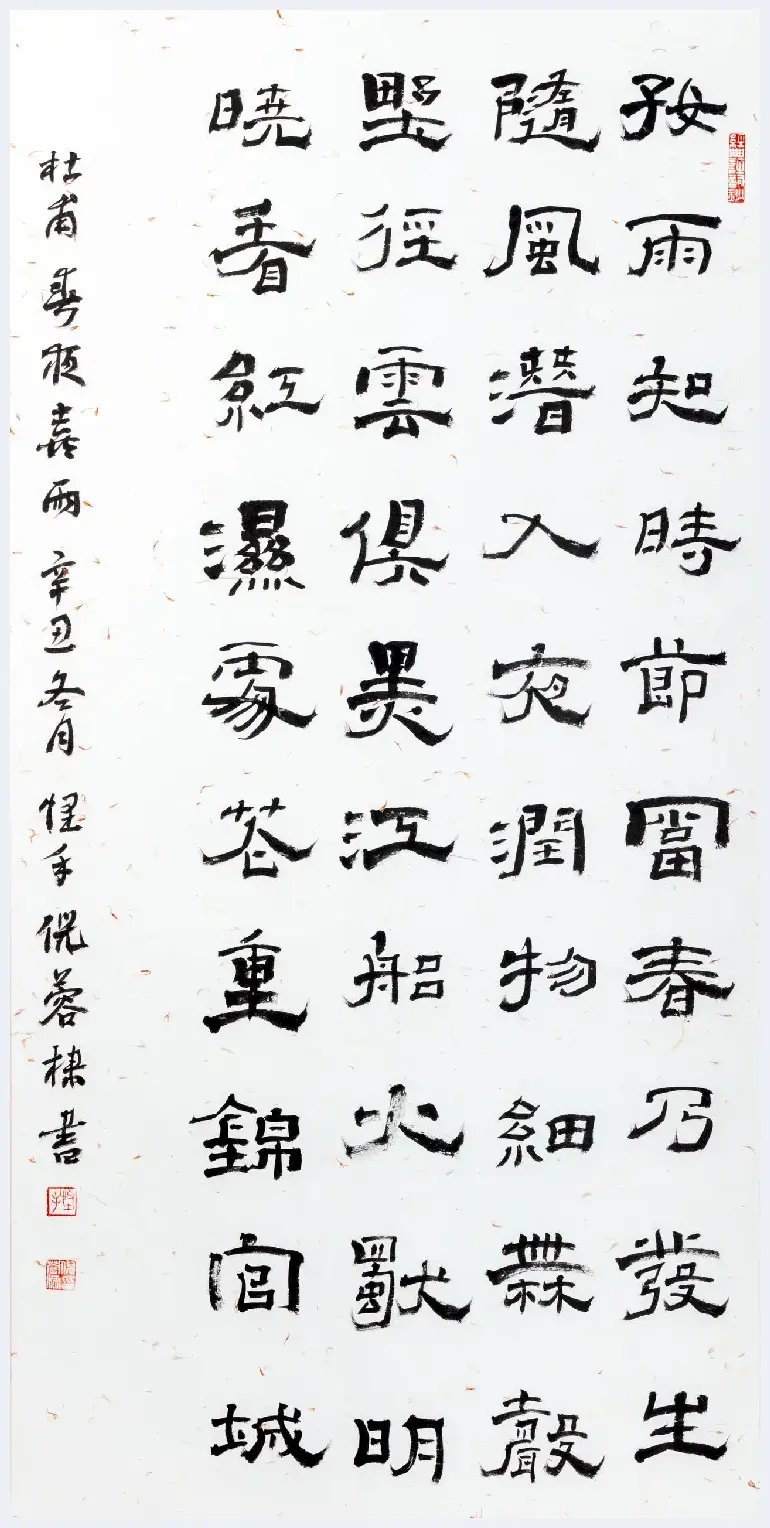 好雨知時節當春乃發生
隨風潛入夜潤物細無聲
野徑雲俱黑江船火獨明
曉看紅濕處花重錦官城
杜甫春夜喜雨 辛丑冬月 倪蓉棣書